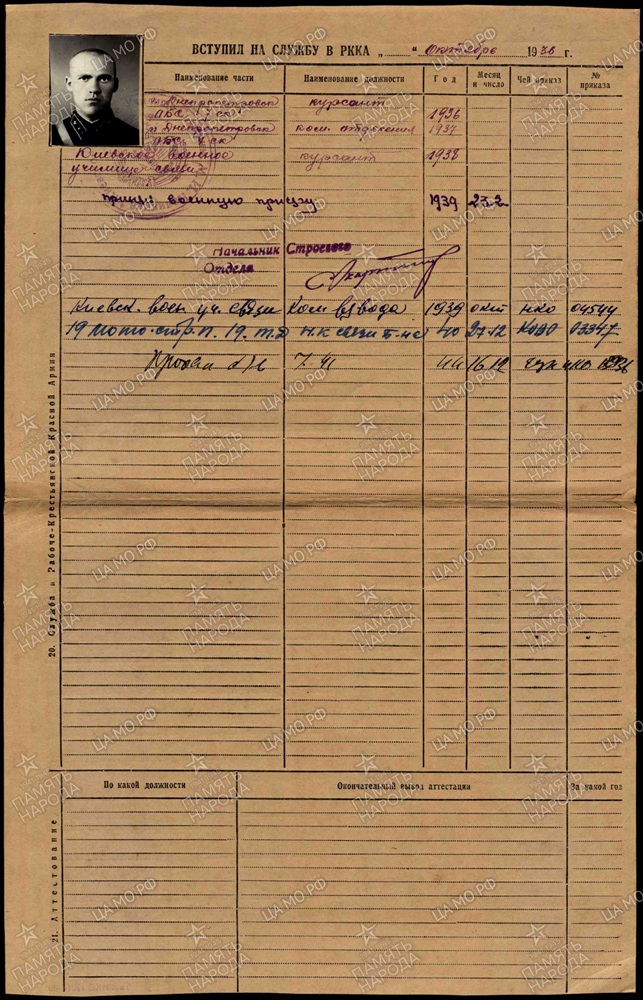 ВСТУПИЛ НА СЛУЖБУ В РККА „ “ Октября 1936 г.
Наименование части Наименование должности Год Месяц и число Чей приказ № приказа
Днепропетровск курсант
1936
Днепропетровск ком. отделения 1937
Киевское военное курсант 1938
училище связи
принял военную присягу 1939 23.2
Начальник Строевого
Отдела
Киевск. воен. уч. связи Ком взвода 1939 окт НКО 04544
19 мото-стр. п. 19. т.д 40 27.12 КОВО 03347
16 12
20. Служба в Рабоче-Крестьянской Красной Армии
По какой должности Окончательный вывод аттестации За какой год
21. Аттестование
ПАМЯТЬ НАРОДА
ЦАМО.РФ